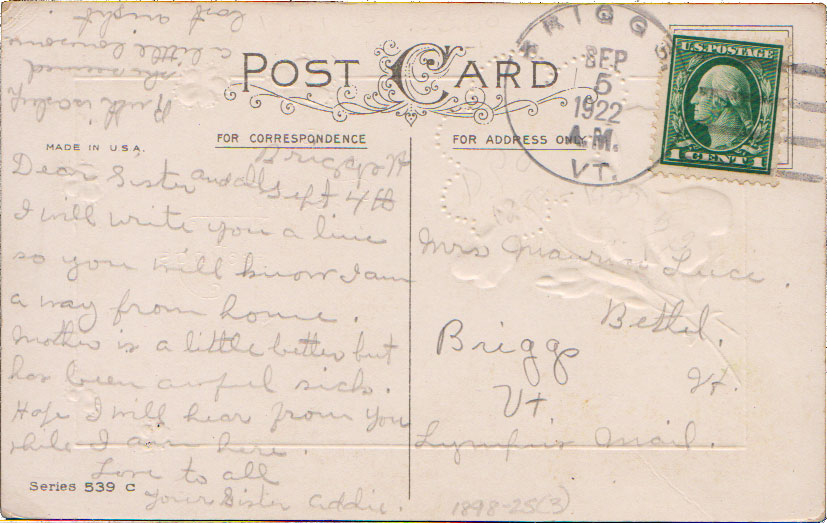 POST CARD
FOR CORRESPONDENCE
FOR ADDRESS ONLY
MADE IN U.S.A.
BRIGGS
SEP
5
1922
A.M.
VT.
U.S. POSTAGE
1 CENT 1
Briggs Vt
Sept 4th
Dear Sister and all
I will write you a line
so you will know I am
a way from home.
Mother is a little better but
has been awful sick.
Hope I will hear from you
while I am here.
Love to all
your Sister Addie.
a little
last night
Mrs Luce.
Bethel.
Vt.
Briggs
Vt
Mail.
Series 539 C
1898-25(3)